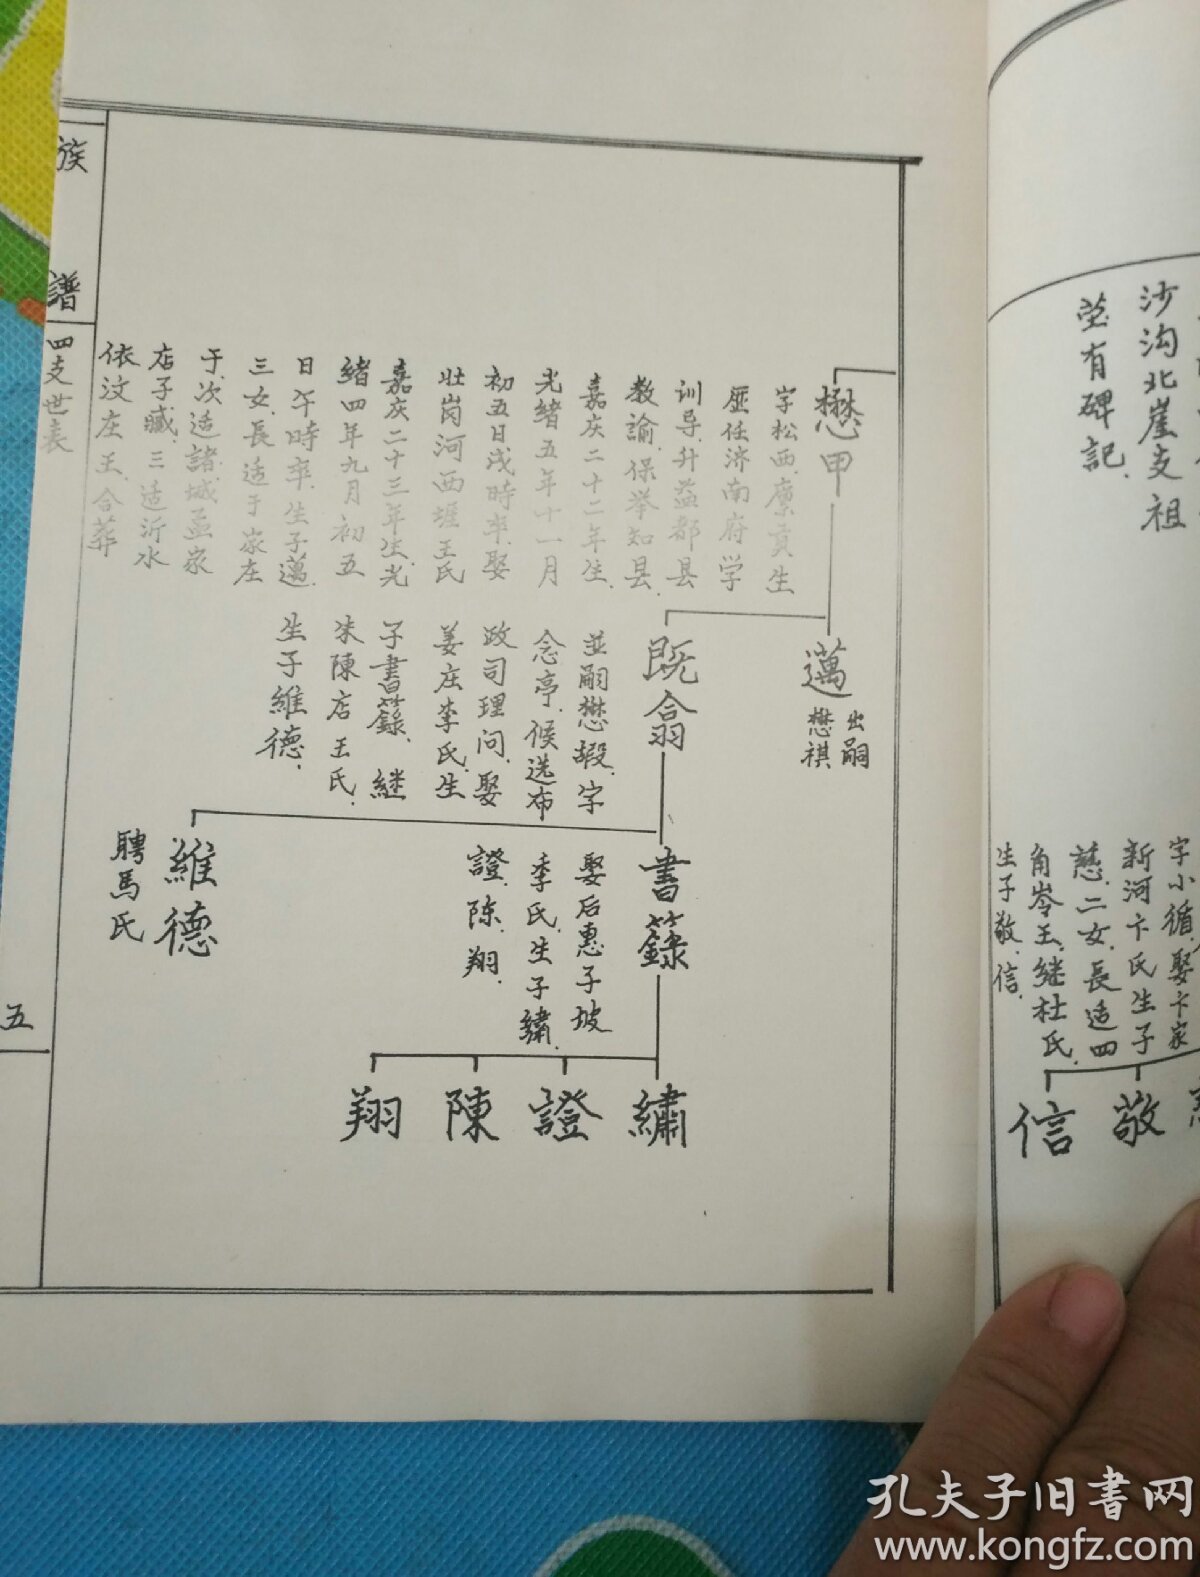 沙沟北崖支祖
茔有碑記.
字小循.娶卞家
新河卞氏生子
慈.二女.長适四
角岺王.继杜氏.
生子敬.信.
敬
信
懋甲
字松西.廪貢生
歷任济南府学
训导.升益都县
教諭.保举知县.
嘉庆二十二年生.
光緒五年十一月
初五日戌時卒.娶
壮岗河西堐王氏
嘉庆二十三年生.光
緒四年九月初五
日午時卒.生子邁.
三女.長适于家庄
于.次适諸城孟家
店子臧.三适沂水
依汶庄王.合葬
邁
出嗣
懋祺
既翕
並嗣懋嘏.字
念亭.候选布
政司理问.娶
姜庄李氏.生
子書籙.継
朱陳店王氏.
生子維德.
書籙
娶后惠子坡
季氏.生子繡.
證.陈.翔.
維德
聘馬氏
繡
證
陳
翔
族譜
四支世表
五
孔夫子旧書网
www.kongfz.com